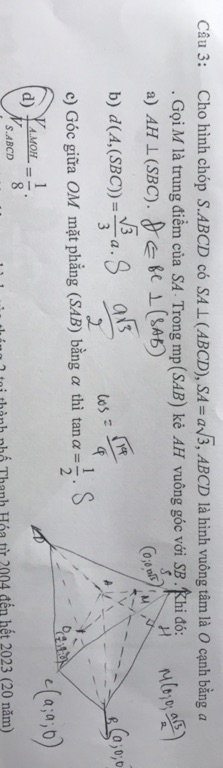 Câu 3: Cho hình chóp S.ABCD có SA ⊥ (ABCD), SA = a√3, ABCD là hình vuông tâm là O cạnh bằng a
. Gọi M là trung điểm của SA. Trong mp(SAB) kẻ AH vuông góc với SB. Khi đó:
a) AH ⊥ (SBC). Đ ⇐ BC ⊥ (SAB)
b) d(A,(SBC)) = √3/3 a. S a√3/2
c) Góc giữa OM mặt phẳng (SAB) bằng α thì tan α = 1/2. S
cos =
d) V A.MOH / V S.ABCD = 1/8.
S
(0;0;a√3)
M(0;0;a√3/2)
H
M
A
O
B
C(a;a;0)
D
Thanh Hóa từ 2004 đến hết 2023 (20 năm)